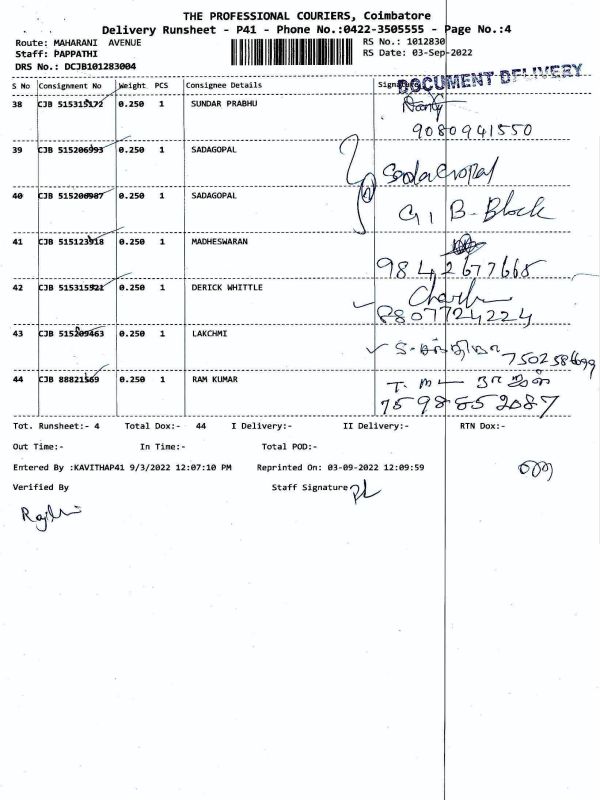 THE PROFESSIONAL COURIERS, Coimbatore
Delivery Runsheet - P41 - Phone No.:0422-3505555 - Page No.:4
Route: MAHARANI AVENUE RS No.: 1012830
Staff: PAPPATHI RS Date: 03-Sep-2022
DRS No.: DCJB101283004
DOCUMENT DELIVERY
S No Consignment No Weight PCS Consignee Details
38 CJB 515315172 0.250 1 SUNDAR PRABHU
9080941550
39 CJB 515206993 0.250 1 SADAGOPAL
Sadagopal
40 CJB 515206987 0.250 1 SADAGOPAL
G1 B-Block
41 CJB 515123918 0.250 1 MADHESWARAN
9842677665
42 CJB 515315921 0.250 1 DERICK WHITTLE
8807724224
43 CJB 515209463 0.250 1 LAKCHMI
44 CJB 88821569 0.250 1 RAM KUMAR
7598852087
Tot. Runsheet:- 4 Total Dox:- 44 I Delivery:- II Delivery:- RTN Dox:-
Out Time:- In Time:- Total POD:-
Entered By :KAVITHAP41 9/3/2022 12:07:10 PM Reprinted On: 03-09-2022 12:09:59
Verified By Staff Signature